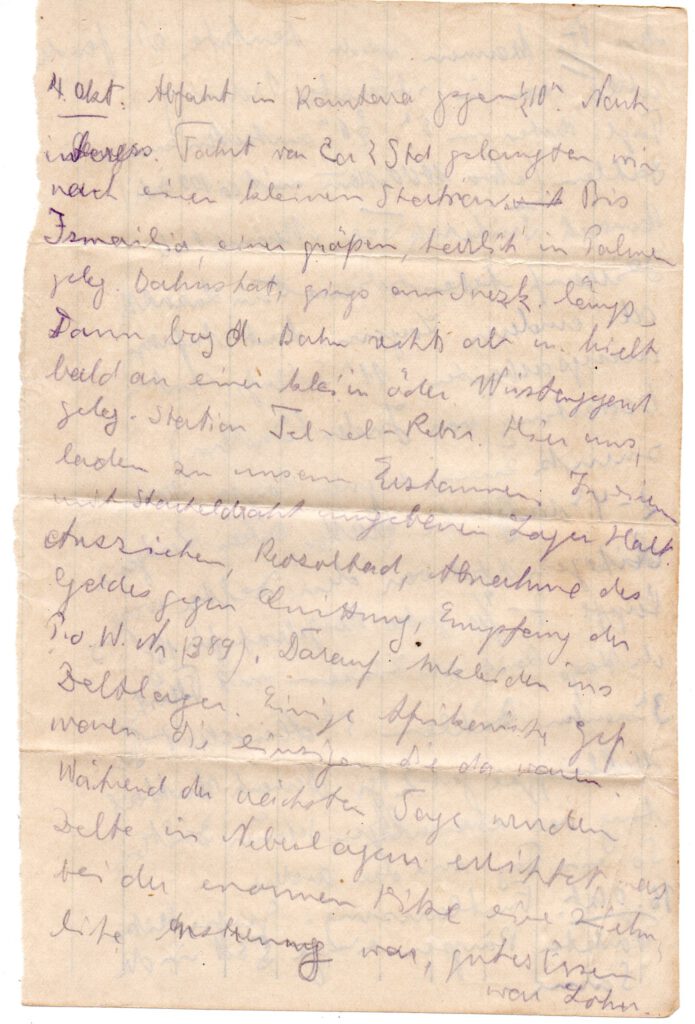 4. Okt. Abfahrt in Kantara gegen ½10ʰ. Nach
Fahrt von ca 2 Std gelangten wir
nach einer kleinen Station. Bis
Ismailia, einer großen, herrlich in Palmen
geleg. Bahnstat, gings am Suezk. längs,
Dann bog d. Bahn rechts ab u. hielt
bald an einer klein öder Wüstengegend
geleg. Station Tel-el-Kebir. Hier aus,
laden zu unserm Erstaunen. In einem
mit Stacheldraht umgebenen Lager Halt.
Ausziehen, Abnahme des
Geldes gegen Quittung, Empfang der
P.o.W. Nr. 1389). Darauf ins
Zeltlager. Einige Afrikanische gef.
waren die einzigen die da waren.
Während der nächsten Tage wurden
Zelte in Nebenlagern errichtet was
bei der enormen Hitze eine ziem,
liche Anstrengung war, gutes Essen
war Lohn.